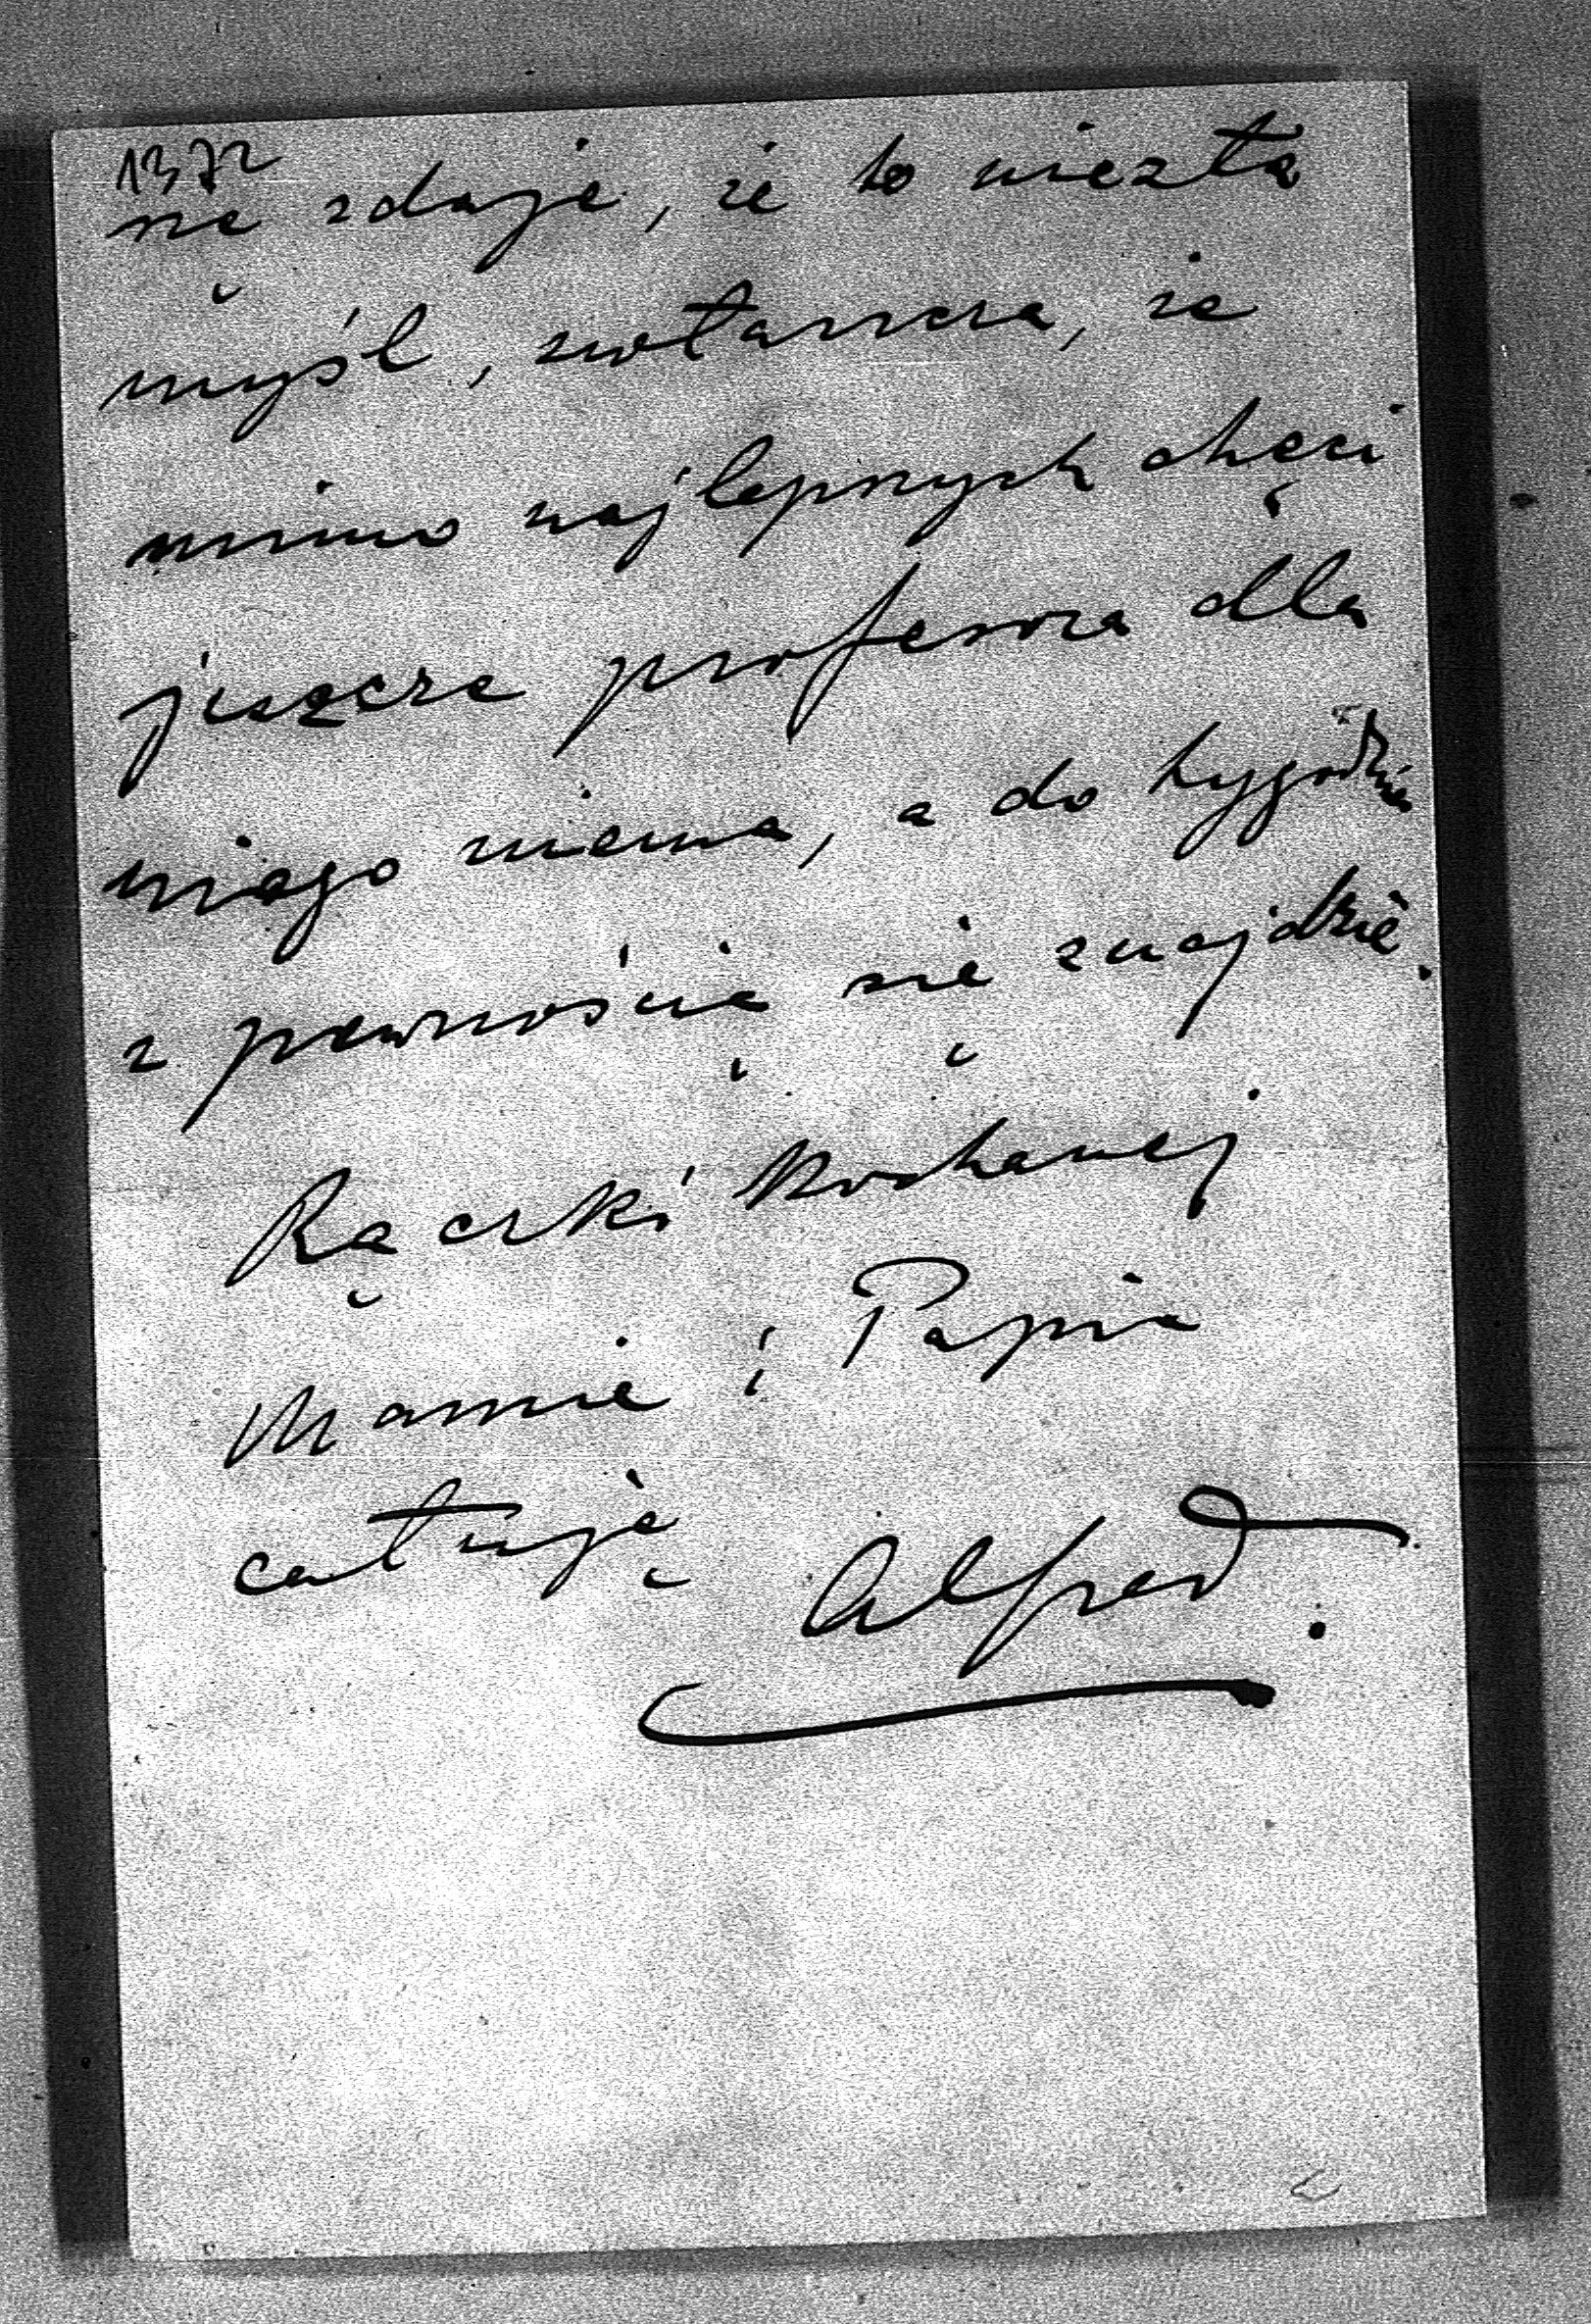 1372
się zdaje, że to niezła
myśl, zwłaszcza, że
mimo najlepszych chęci
jeszcze profesora dla
niego niema, a do tygodnia
z pewnością się znajdzie.
Rączki kochanej
Mamie i Papie
całuję Alfred.